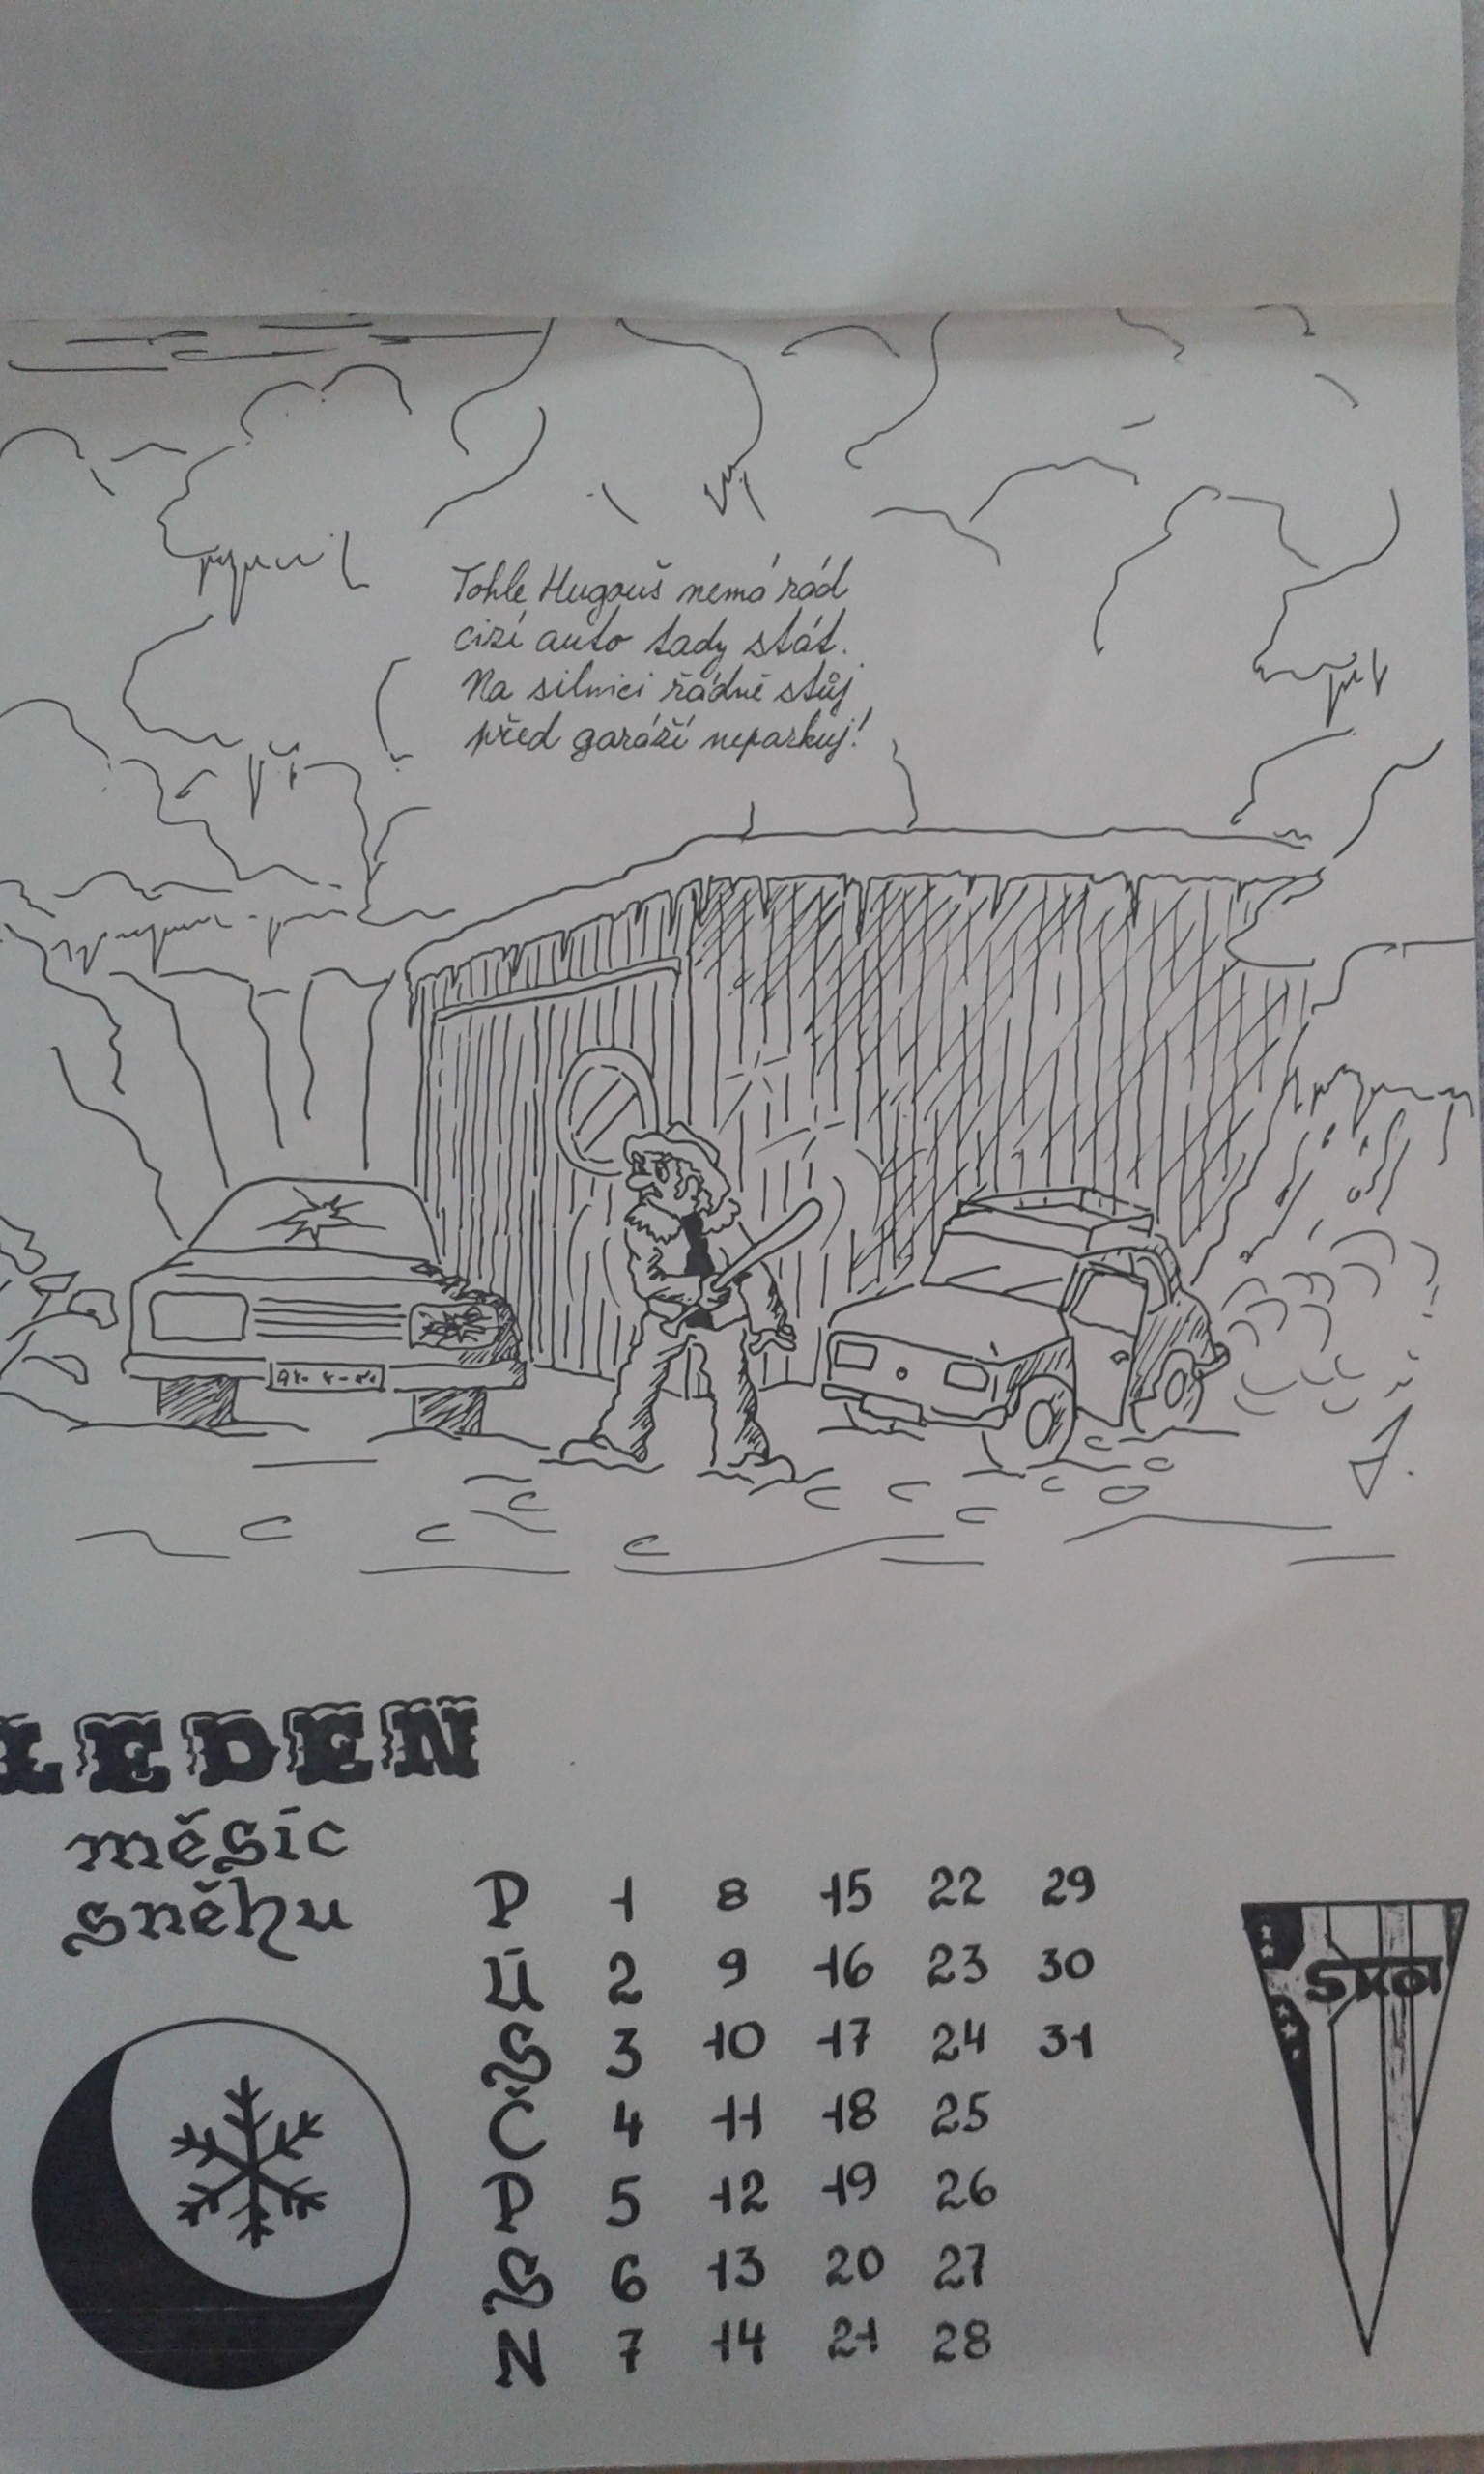 Tohle Hugouš nemá rád
cizí auto tady stát.
Na silnici řádně stůj
před garáží neparkuj!
LEDEN
měsíc
sněhu
P 1 8 15 22 29
Ú 2 9 16 23 30
S 3 10 17 24 31
Č 4 11 18 25
P 5 12 19 26
S 6 13 20 27
N 7 14 21 28
SKOL